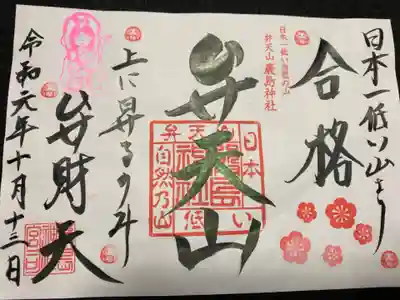 日本一低い山より
合格
日本一低い自然の山
弁天山 厳島神社
弁天山
日本一低い
自然乃山
上に昇るのみ
弁財天
令和元年十月十三日